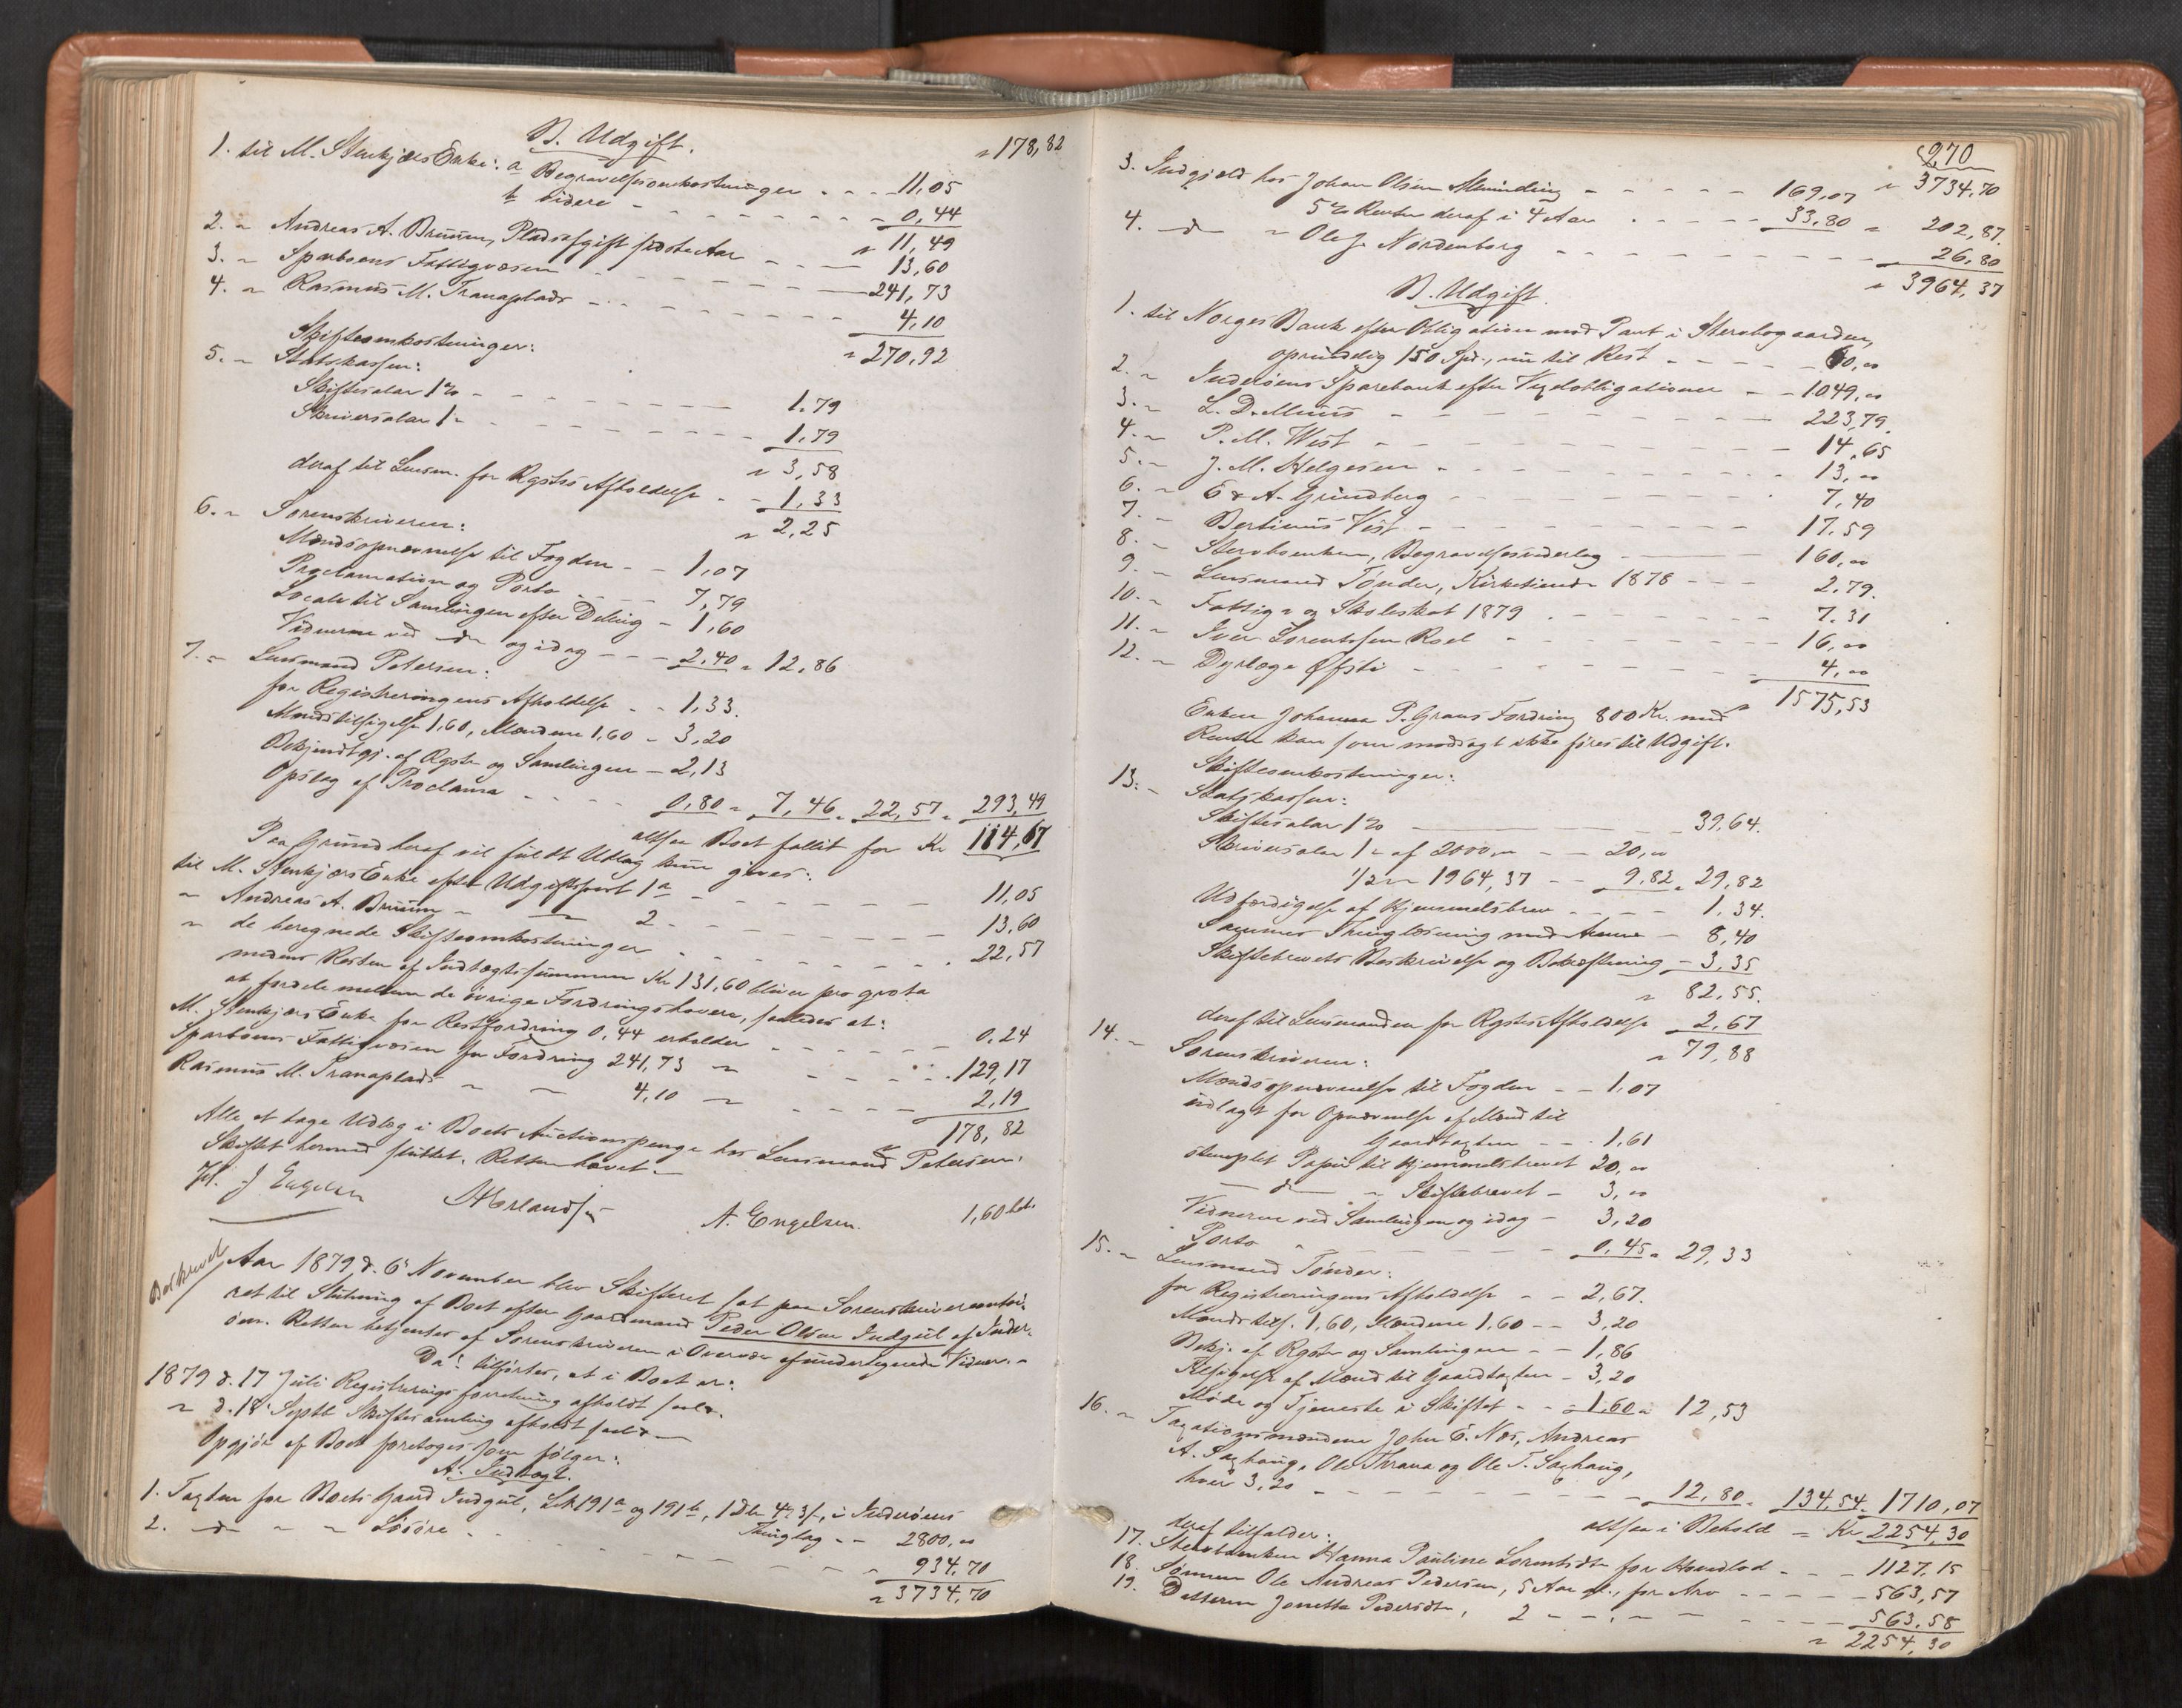 B. Udgift.
" 178,82
1. til M. Stenkjærs Enke: a Begravelsesomkostninger - - - 11,05
b videre - - - 0,44
" 11,49
2. " Andreas A. Bruum, Pladsafgift sidste Aar - - 13,60
3. " Sparboens Fattigvæsen - - - 241,73
4. " Rasmus M. Tranaplads - - - 4,10
" 270,92
Skifteomkostninger:
5. " Statskassen:
Skiftesalær 1% - - - 1,79
Skriversalær 1 " - - - 1,79
" 3,58
deraf til Lensm. for Rgstrs Afholdelse - - 1,33
" 2,25
6. " Sorenskriveren:
Mændsopnævnelse til Fogden - - 1,07
Proclamation og Porto - - - 7,79
Locale til Samlingen efter Deling - 1,60
Vidnerne ved do og idag - - - 2,40 " 12,86
7. " Lensmand Petersen:
for Registreringens Afholdelse - - 1,33.
Mændstilsigelse 1,60, Mændene 1,60 - 3,20
Bekjendtgj. af Rgstr og Samlingen - 2,13
Opslag af Proclama - - - 0,80 " 7,46 " 22,57 " 293,49
altsaa Boet fallit for Kr 114,67
Paa Grund heraf vil fuldt Udlæg kun gives:
til M. Stenkjærs Enke efter Udgiftspost 1 a - - - 11,05
" Andreas A. Bruum " — 2 - - - 13,60
" de beregnede Skifteomkostninger - - - 22,57
medens Resten af Indtægtssummen Kr 131,60 bliver pro qvota
at fordele mellem de øvrige Fordringshavere, saaledes at:
M. Stenkjærs Enke for Restfordring 0,44 erholder - - - 0,24
Sparboens Fattigvæsen for Fordring 241,73 " - - - 129,17
Rasmus M. Tranaplads " " 4,10 " - - - 2,19
" 178,82
Alle at tage Udlæg i Boets Auctionspenge hos Lensmand Petersen.
Skiftet hermed sluttet. Retten hævet. —
J Engelsen
A Erlandsen
A. Engelsen.
1,60 bet.
Beskrevet
Aar 1879 d. 6' November blev Skifteret sat paa Sorenskrivercontoi-
ret til Slutning af Boet efter Gaardmand Peder Olsen Indgul af Inder-
øen. Retten betjentes af Sorenskriveren i Overvær af undertegnede Vidner. -
Da! tilførtes, at i Boet er:
1879 d. 17 Juli Registreringsforretning afholdt
" d. 18' Septb. Skiftesamling afholdt
Opgjør af Boet foretoges som følger:
A. Indtægt.
1. Taxten for Boets Gaard Indgul, L№ 191 a og 191 b, 1 Dlr 4 3, i Inderøens
Thinglag - - 2800,00
2. do " " Løsøre - - - 934,70
" 3734,70
270
" 3734,70
3. Indgjæld hos Johan Olsen Alminding - - - 169,07
5% Renter deraf i 4 Aar - - - 33,80 " 202,87.
4. do " Ole J. Nordenborg - - - 26,80
" 3964,37
B. Udgift.
1. til Norges Bank efter Obligation med Pant i Stervbogaarden,
oprindelig 150 Spd., nu til Rest - - - 60,00
2. " Inderøens Sparebank efter Vexelobligationer - - 1049,00
3. " L. D. Muus - - - 223,79.
4. " P. M. West - - - 14,65
5. " J. M. Helgesen - - - 13,00
6. " E & A. Grundberg - - - 7,40
7. " Bertinus Vist - - - 17,59
8. " Stervboenken, Begravelsesvederlag - - - 160,00
9. " Lensmand Tønder, Kirketiende 1878 - - - 2,79.
10. " Fattig- og Skoleskat 1879 - - - 7.31
11. " Iver Lorentsen Roel - - - 16,00
12. " Dyrlæge Øfsti - - - 4,00
" 1575,53
Enken Johanna P. Grans Fordring 800 Kr. med
Renter kan som modsagt ikke føres til Udgift.
Skifteomkostninger:
13. " Statskassen:
Skiftesalær 1% - - - 39,64.
Skriversalær 1 " af 2000,00 - - 20,00
1/2 " " 1964,37 - - 9,82 " 29,82
Udfærdigelse af Hjemmelsbrev - - - 1,34.
Sammes Thinglæsning med - 8,40
Skiftebrevets Beskrivelse og Bekræftning - 3,35
" 82,55.
deraf til Lensmanden for Rgstrs Afholdelse 2,67
" 79,88
14. " Sorenskriveren:
Mændsopnævnelse til Fogden - - 1,07
udlagt for Opnævnelse af Mænd til
Gaardtaxten - - - 1,61
stemplet Papir til Hjemmelsbrevet 20,00
— do — " Skiftebrevet - 3,00
Vidnerne ved Samlingen og idag - 3,20
Porto - - - 0,45 " 29,33
15. " Lensmand Tønder:
for Registreringens Afholdelse - - 2,67.
Mændstils. 1,60, Mændene 1,60 - - 3,20
Bekj. af Rgstr og Samlingen - - 1,86
Tilsigelse af Mænd til Gaardtaxten - 3,20
Møde og Tjeneste i Skiftet - - 1,60 " 12,53
16. " Taxationsmændene John E. Næs, Andreas
A. Saxhaug, Ole Thrana og Ole T. Saxhaug,
hver 3,20 - - - 12,80 " 134,54 " 1710,07
altsaa i Behold - Kr 2254,30
deraf tilfalder:
17. Stervboenken Hanna Pauline Lorentsdtr for Hovedlod - - - 1127,15
18. Sønnen Ole Andreas Pedersen, 5 Aar gl., for Arv - - - 563,57
19. Datteren Jonetta Pedersdtr, 2 - - - 563,58
" 2254,30